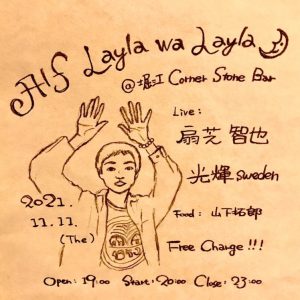 Alf Layla wa Layla
@ 堀江 Corner Stone Bar
Live:
扇芝 智也
光輝 Sweden
2021.
11.11.
(The)
Food: 山下拓郎
Free Charge!!!
Open: 19:00 Start: 20:00 Close: 23:00